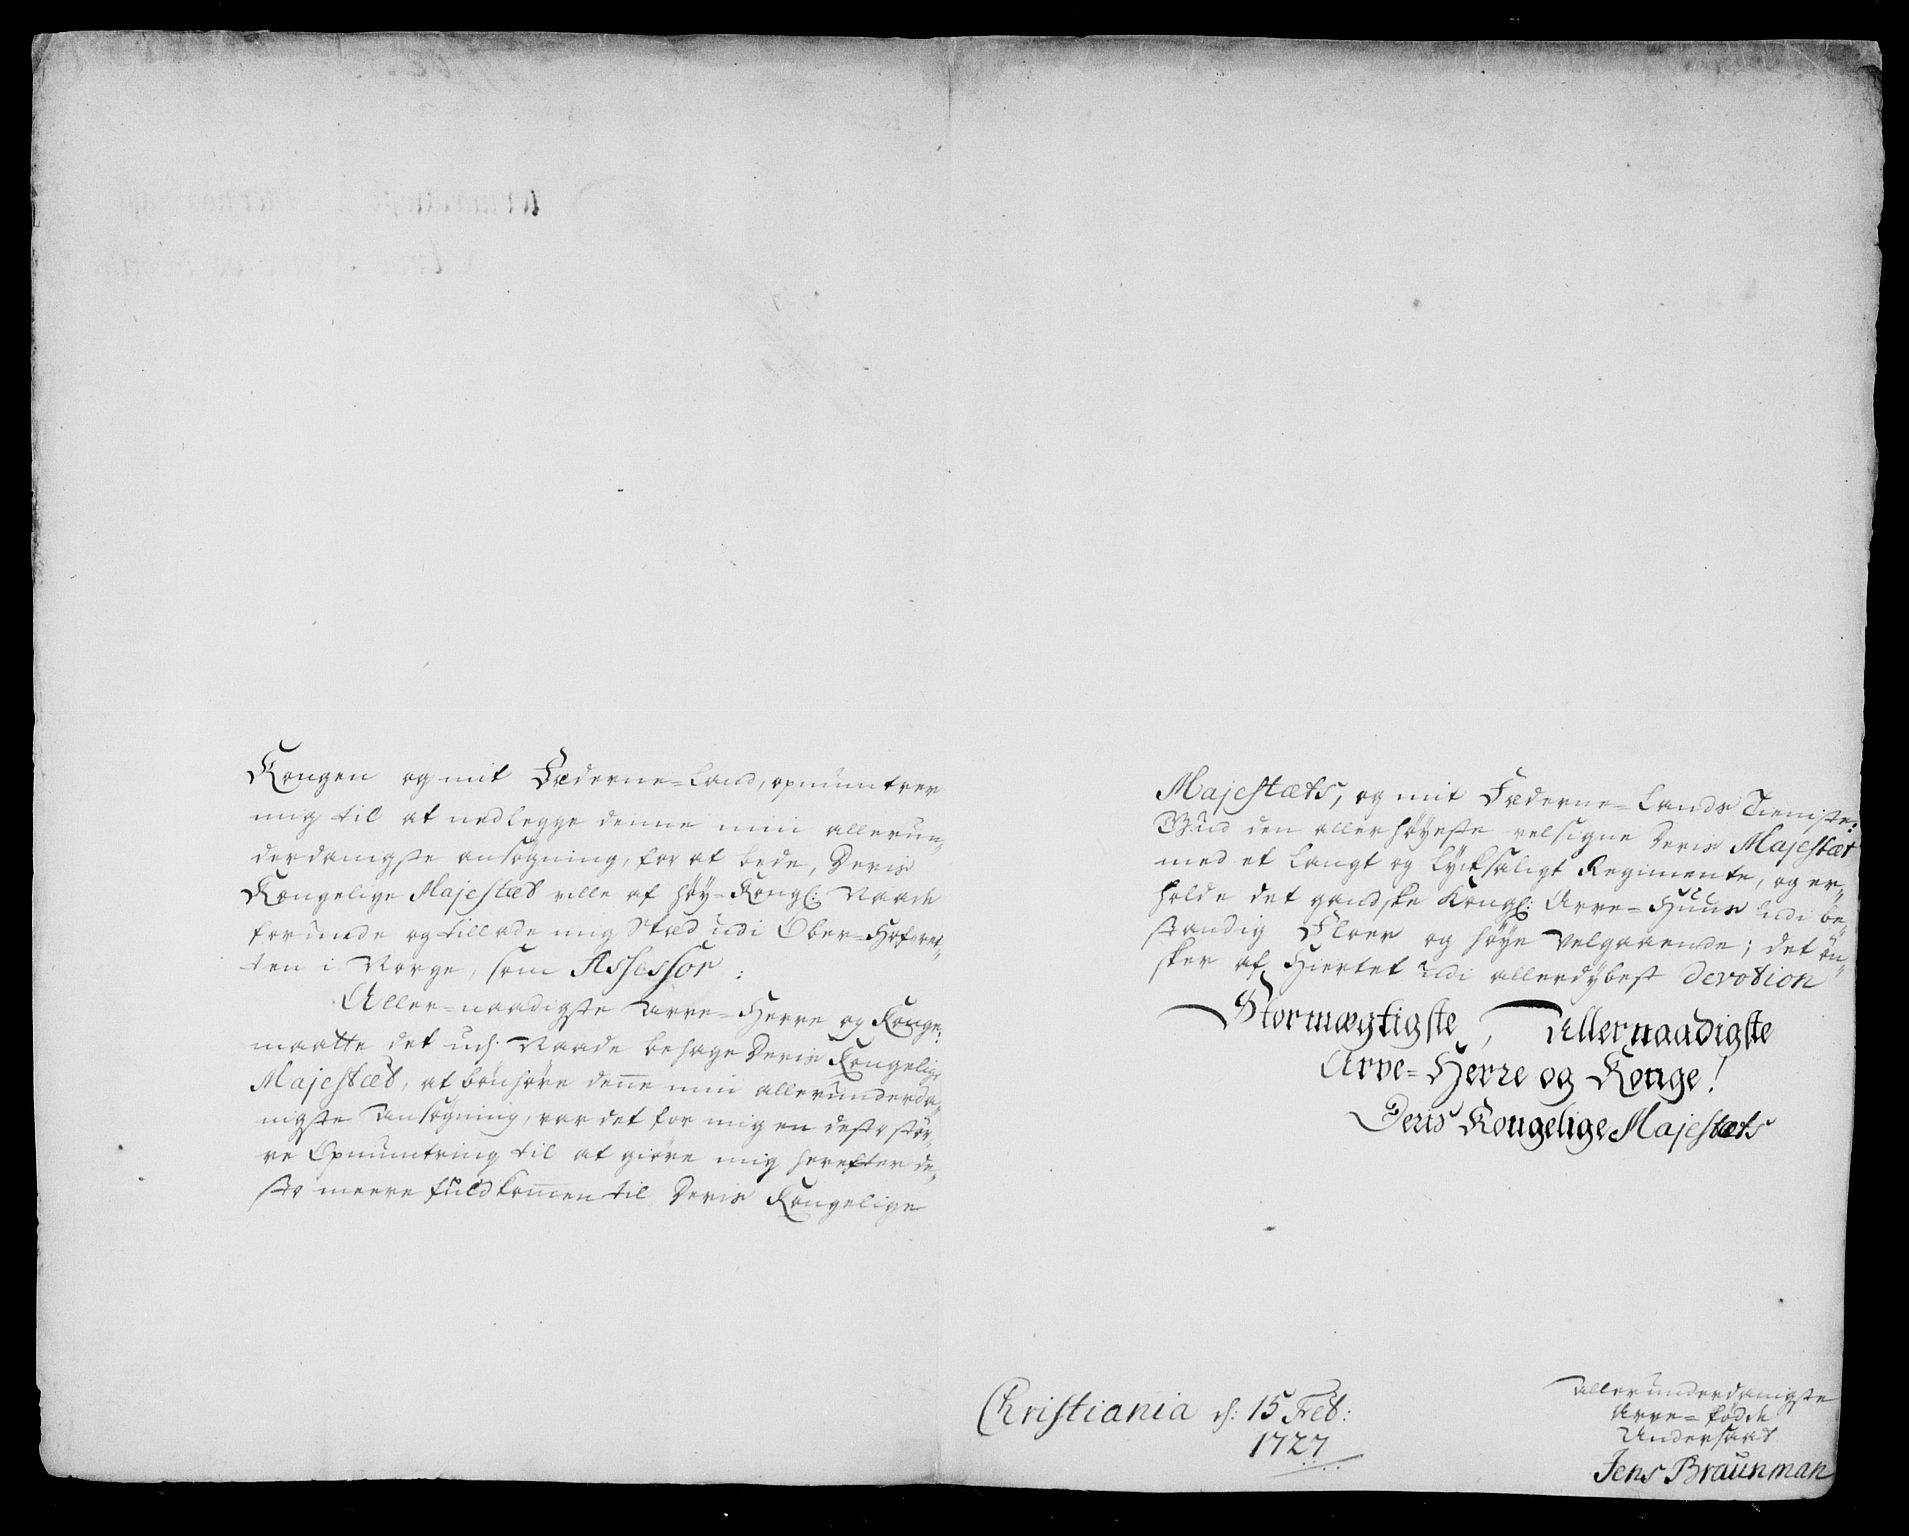 Kongen og mit Fæderne=Land, opmuntrer
mig til at nedlegge denne min allerun„
derdanigste ansøgning, for at bede, Deris
Kongelige Majestæt ville af høy=Kongl: Naade
forunde og tillade mig Stæd udi Ober=Hofret„
ten i Norge, som Assessor:
Aller=naadigste Arve=Herre og Konge:
maatte det udj Naade behage Deris Kongelige
Majestæt, at bønhøre denne min allerunderda„
nigste Ansøgning, var det for mig en desto stør„
re Opmuntring til at giøre mig herefter de„
sto meere fuldkomen til Deris Kongelige
Majestæts, og mit Fæderne=Lands Tieniste:
Gud den allerhøyeste velsigne Deris Majestæt
med et langt og lycksaligt Regimente, og er„
holde det gandske Kongl: Arve=Huus udi be„
standig Floer og høye Velgaaende; det øn„
sker af Hiertet udi allerdybest devotion
Stormægtigste, Allernaadigste
Arve=Herre og Konge!
Deris Kongelige Majestæts
Christiania d: 15 Feb:
1727
Allerunderdanigste
Arve=fødde
Undersaat
Jens Braunman